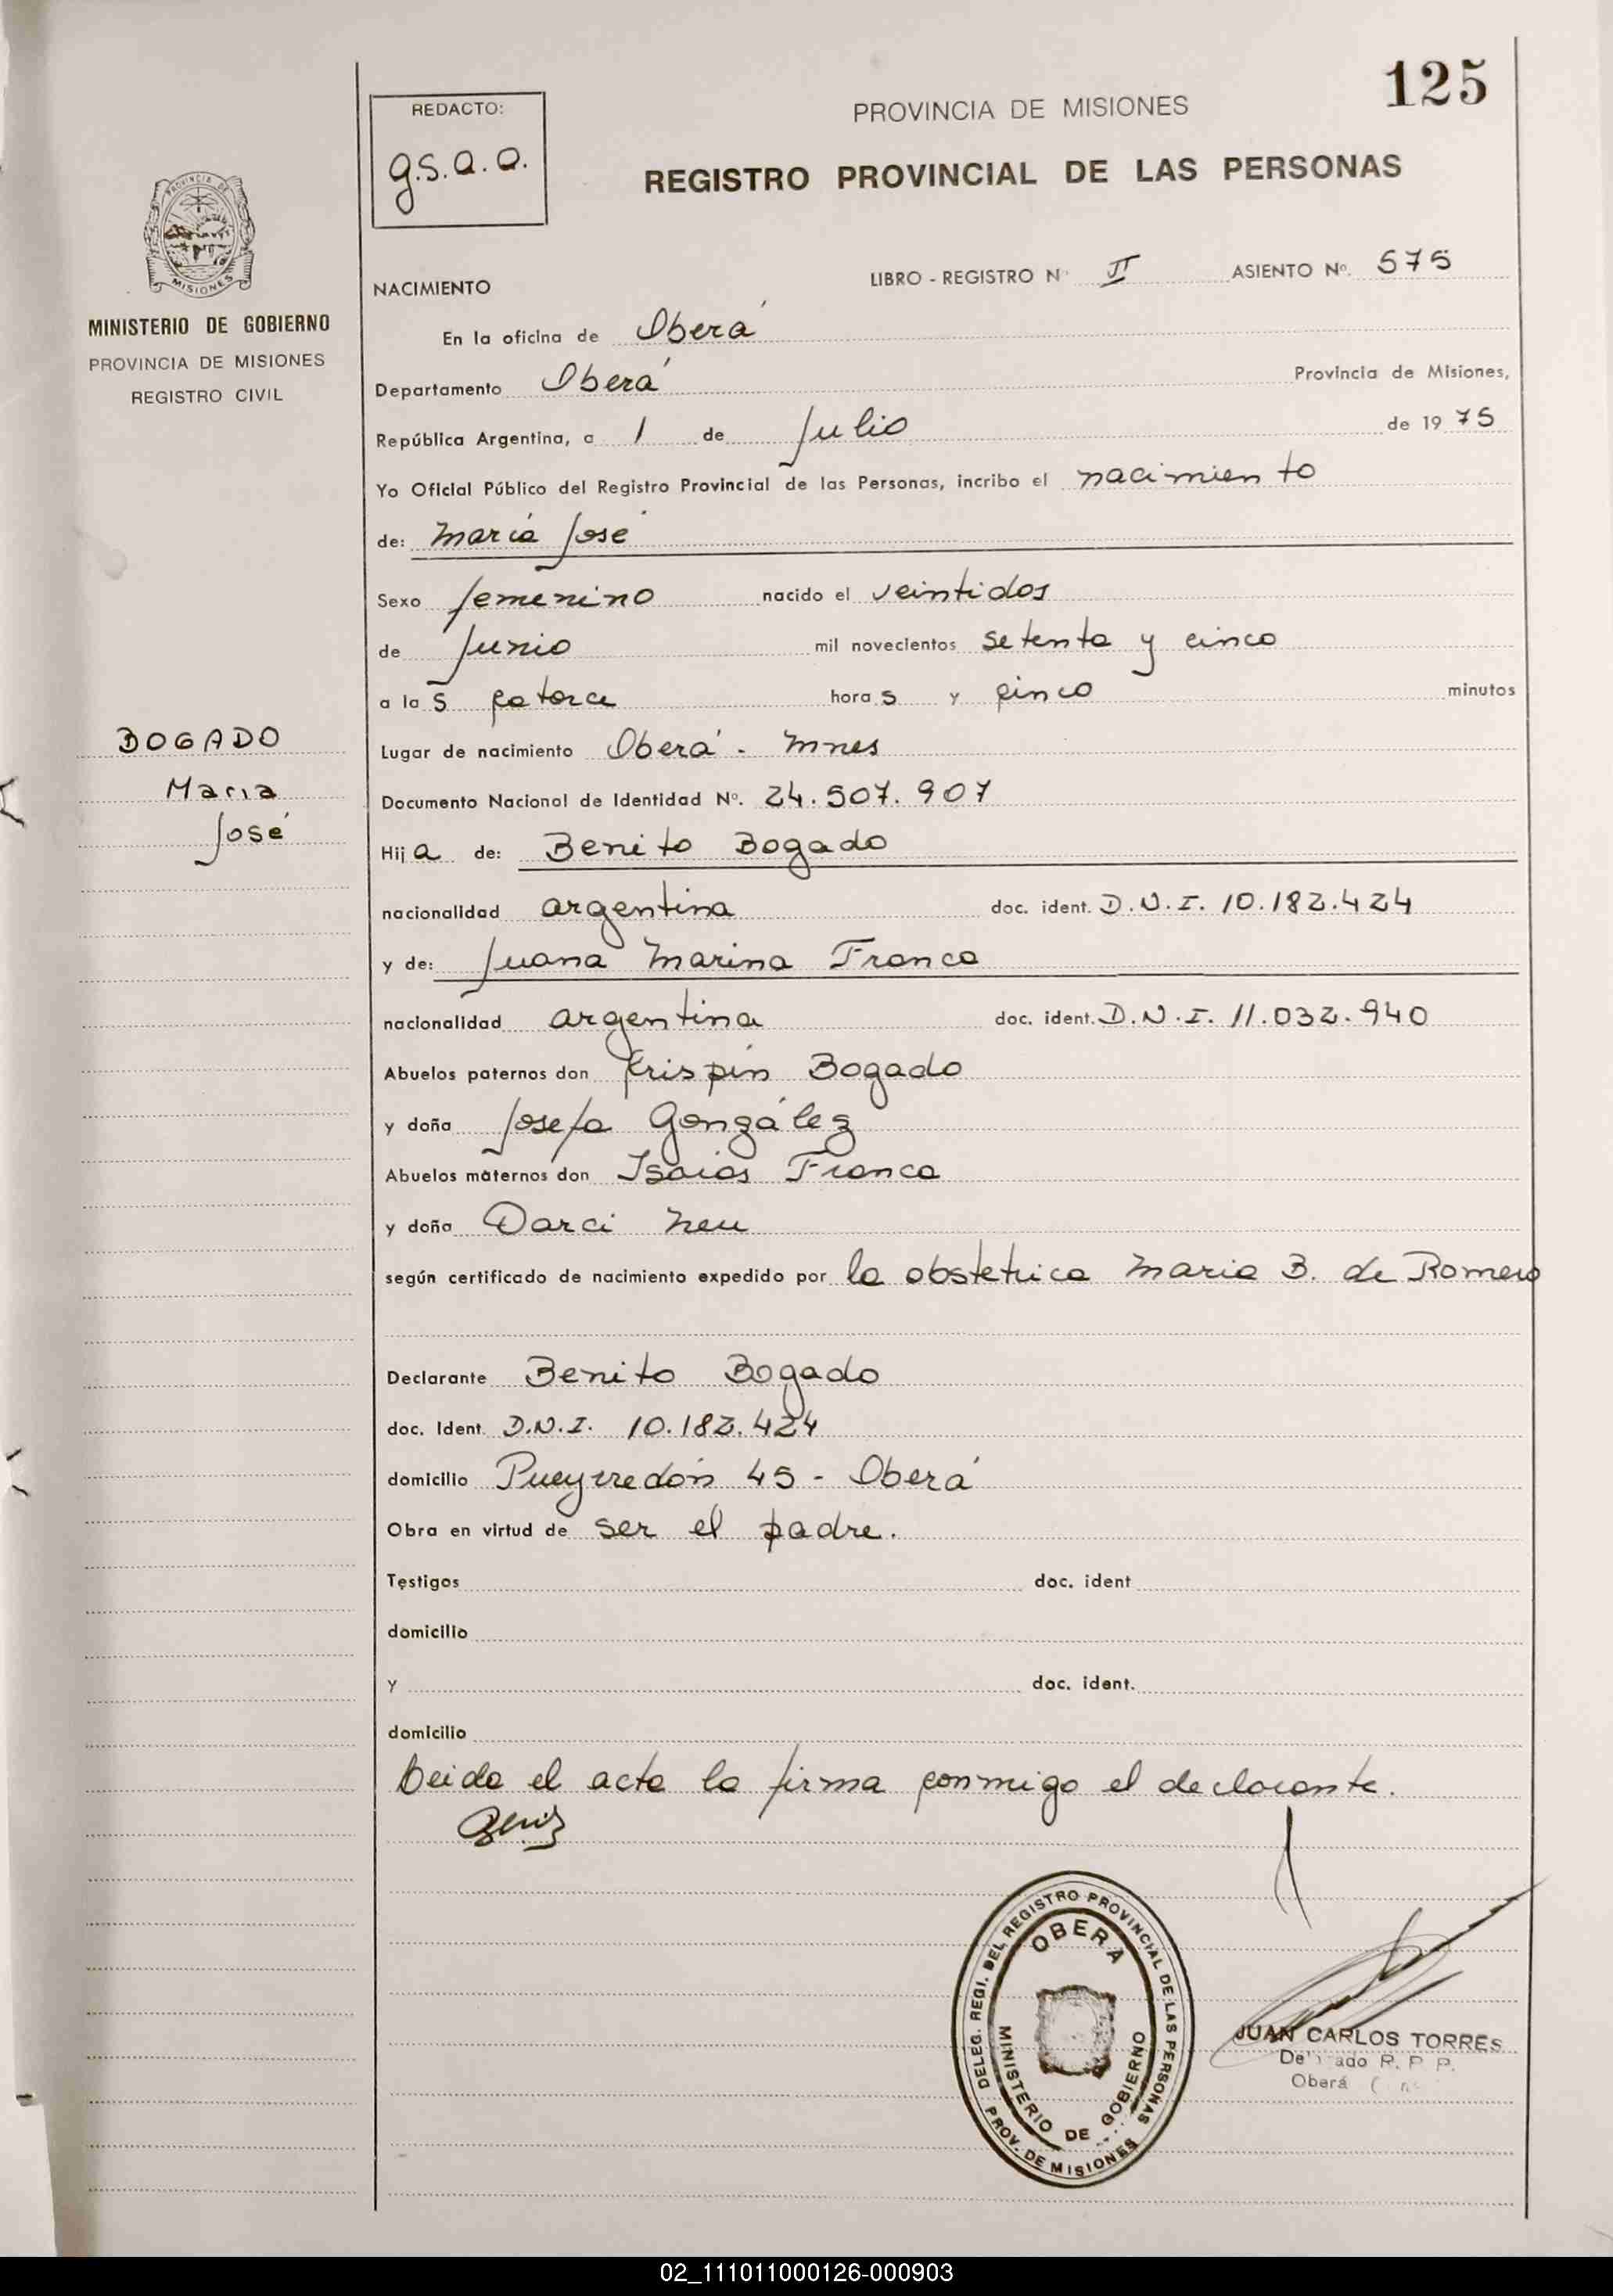 125
REDACTO:
g.s.a.a.
PROVINCIA DE MISIONES
REGISTRO PROVINCIAL DE LAS PERSONAS
PROVINCIA DE
MISIONES
MINISTERIO DE GOBIERNO
PROVINCIA DE MISIONES
REGISTRO CIVIL
NACIMIENTO LIBRO - REGISTRO Nº II ASIENTO Nº. 575
En la oficina de Oberá
Departamento Oberá Provincia de Misiones,
República Argentina, a 1 de Julio de 1975
Yo Oficial Público del Registro Provincial de las Personas, incribo el nacimiento
de: María José
Sexo femenino nacido el veintidos
de Junio mil novecientos setenta y cinco
a las catorce horas y cinco minutos
BOGADO
María
José
Lugar de nacimiento Oberá - Mnes
Documento Nacional de Identidad Nº. 24.507.907
Hija de: Benito Bogado
nacionalidad argentina doc. ident. D.N.I. 10.182.424
y de: Juana Marina Franco
nacionalidad argentina doc. ident. D.N.I. 11.032.940
Abuelos paternos don Crispín Bogado
y doña Josefa González
Abuelos maternos don Isaias Franco
y doña Darci Neu
según certificado de nacimiento expedido por la obstetrica Maria B. de Romero
Declarante Benito Bogado
doc. Ident. D.N.I. 10.182.424
domicilio Pueyrredón 45 - Oberá
Obra en virtud de ser el padre.
Testigos doc. ident
domicilio
y doc. ident.
domicilio
Leida el acta la firma conmigo el declarante.
DELEG. REGI. DEL REGISTRO PROVINCIAL DE LAS PERSONAS
OBERA
MINISTERIO DE GOBIERNO
PROV. DE MISIONES
JUAN CARLOS TORRES
R. P. P.
Oberá
02_111011000126-000903